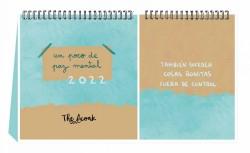 un poco de
paz mental
2022
TAMBIÉN SUCEDEN
COSAS BONITAS
FUERA DE CONTROL